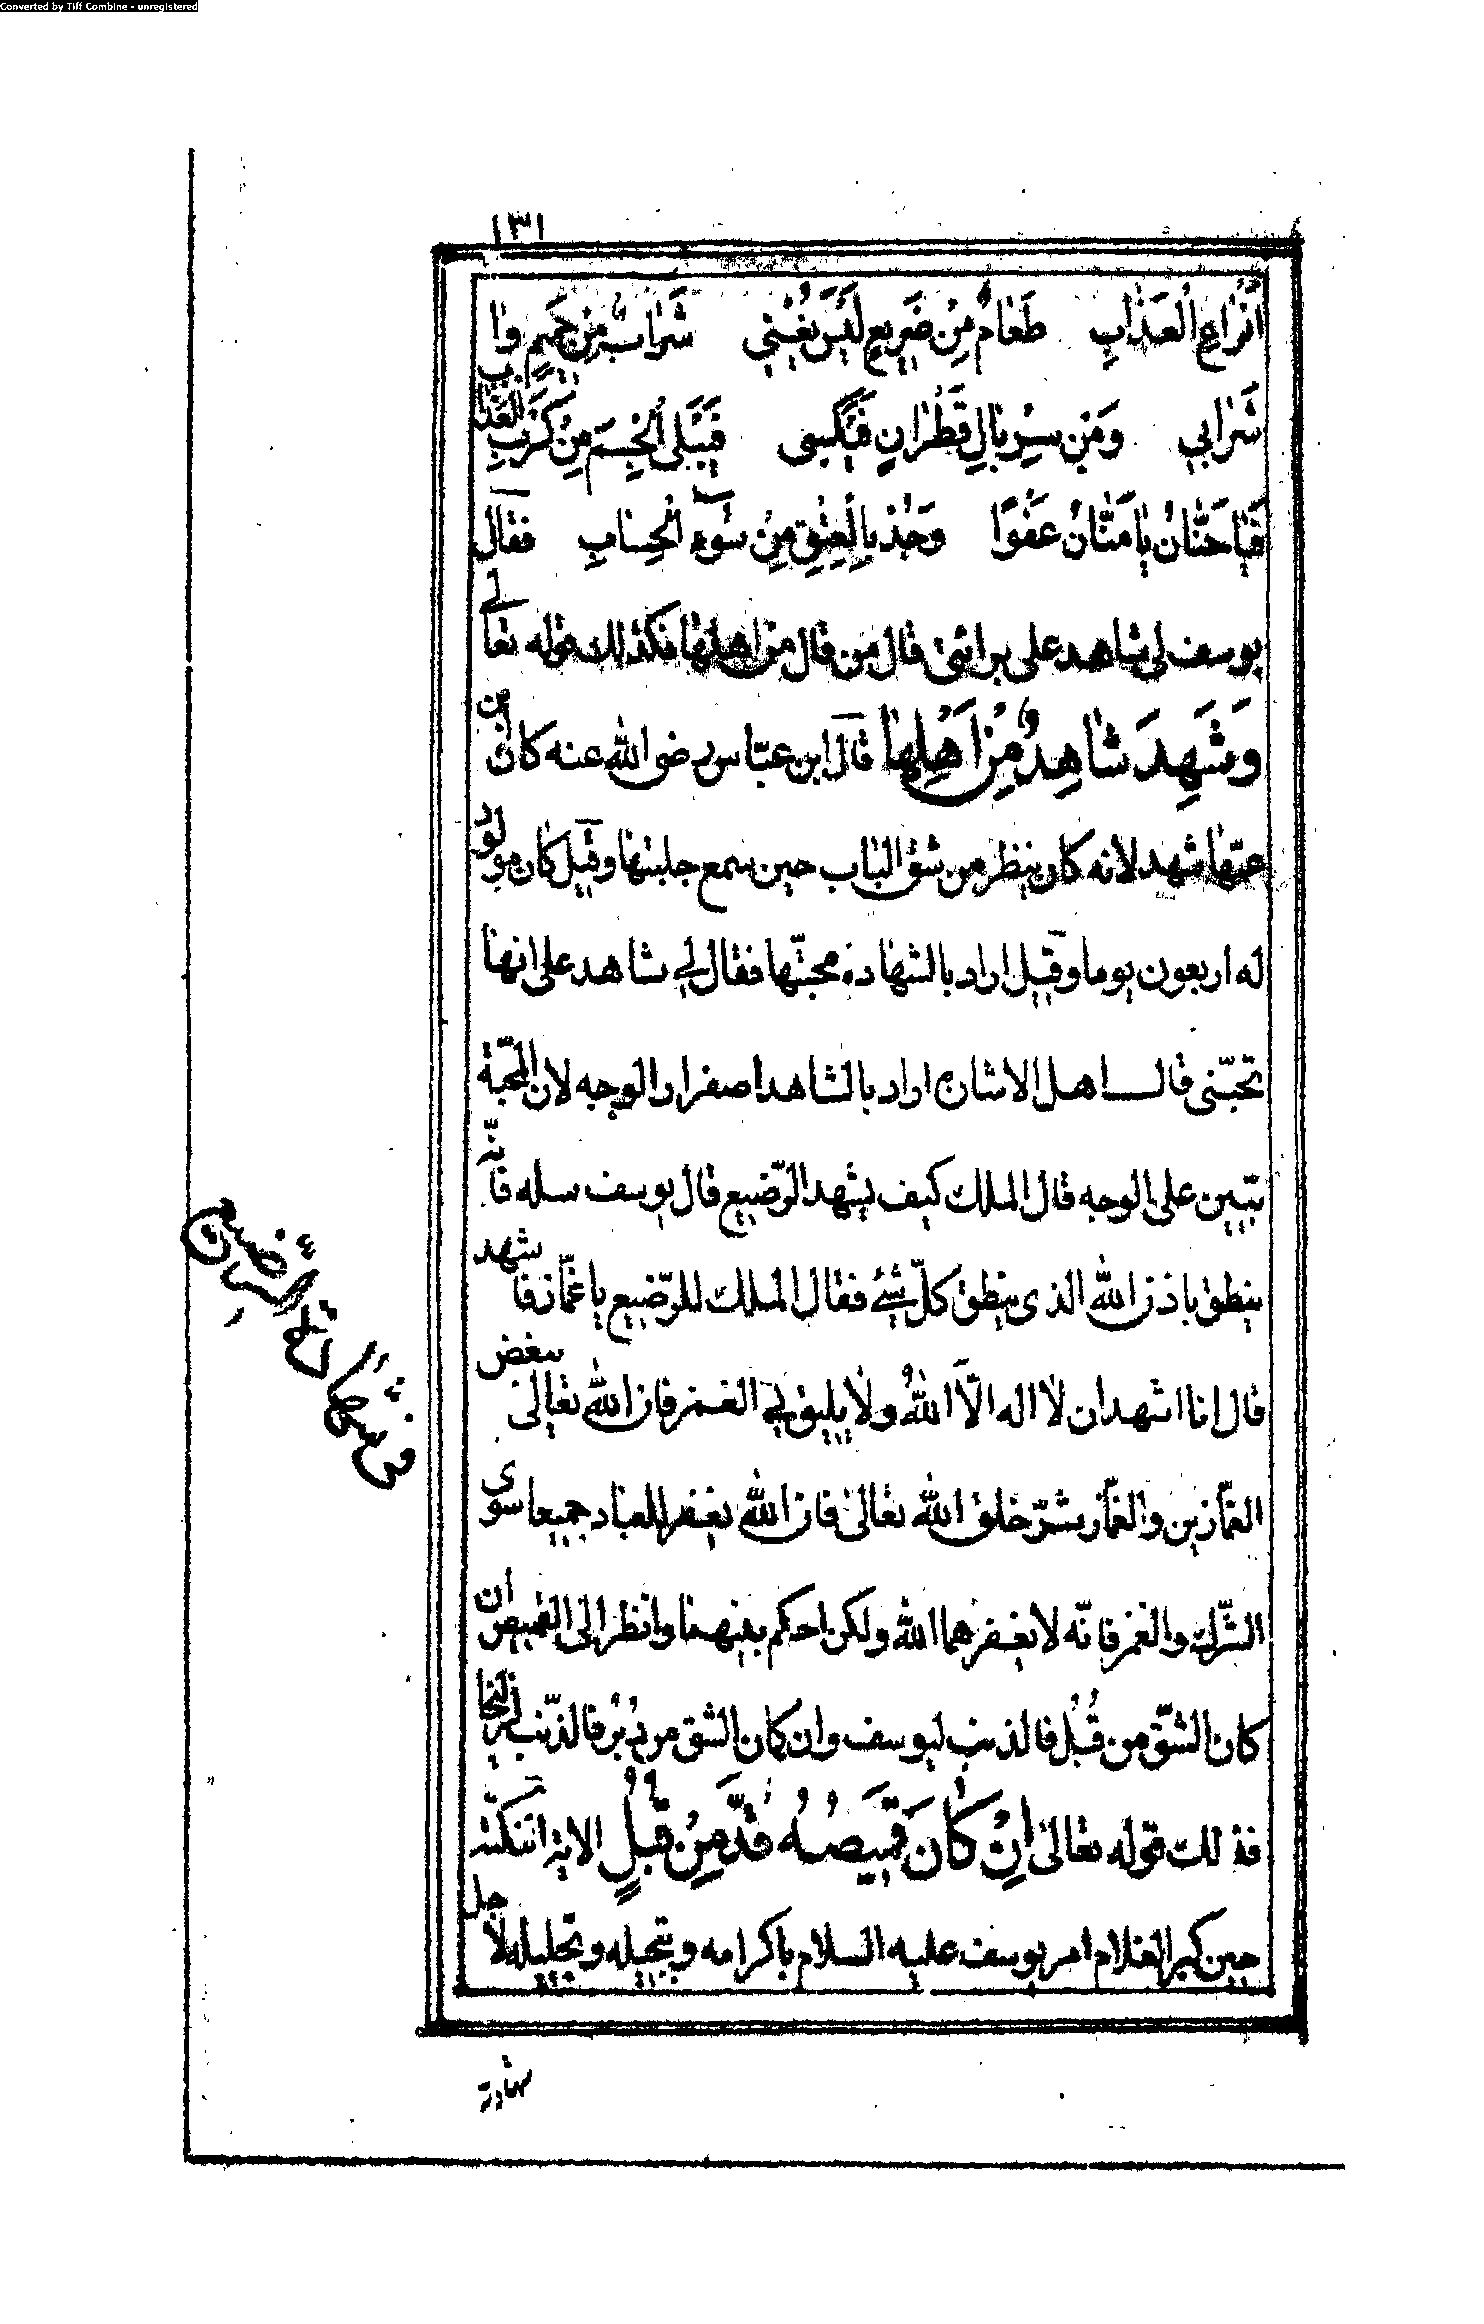 Converted by Tiff Combine - unregistered
١٣١
اَنْوَاعِ الْعَذَابِ طَعَامٌ مِنْ ضَرِيعٍ لَيْسَ يُغْنِي شَرَابٌ مِنْ حَمِيمٍ وا
شَرَابِي وَمِنْ سِرْبَالِ قَطِرَانٍ فَيُكْسَى فَيَبْلَى الْجِسْمَ مِنْ كَرْبِ العَذَابِ
فَيَا حَنَّانُ يَا مَنَّانُ عَفْوًا وَخُذْ بِالْعِتْقِ مِنْ سُوۤءِ الْحِسَابِ فقال
يوسف لى شاهد على براتى قال من قال من اهلها فكذلك قوله تعالى
وَشَهِدَ شَاهِدٌ مِنْ اَهْلِهَا قال ابن عبّاس رضى الله عنه كان ابن
عمّها شهد لانه كان ينظر من شق الباب حين سمع جلبتها وقيل كان مولود
له اربعون يوما وقيل اراد بالشهادة محبّتها فقال لي شاهد على انها
تحبّنى قال اهل الاشارة اراد بالشاهد اصفرار الوجه لان المحبّة
تبيّن على الوجه قال الملك كيف يشهد الرّضيع قال يوسف سله فانّه
ينطق باذن الله الذى ينطق كلّ شئ فقال الملك للرّضيع يا غمّاز فاشهد
قال انا اشهد ان لا اله الاّ اللهُ ولا يليق بي الغمز فان الله تعالى يبغض
الغمّازين والغمّاز بشرّ خلق الله تعالى فان الله يغفر للعباد جميعا سوى
الشّرك والغمز فانّه لا يغفرهما الله ولكن احكم بينهما وانظر الى القميص ان
كان الشّق من قُبُل فالذنب ليوسف وان كان الشق من دُبُر فالذّنب لزليخا
فذلك قوله تعالى اِنْ كَانَ قَمِيصُهُ قُدَّ مِنْ قُبُلٍ الاية
حين كبر الغلام امر يوسف عليه السلام باكرامه وتبجيله وتجليله لاجل
شهادة
فى شهادة الرضيع